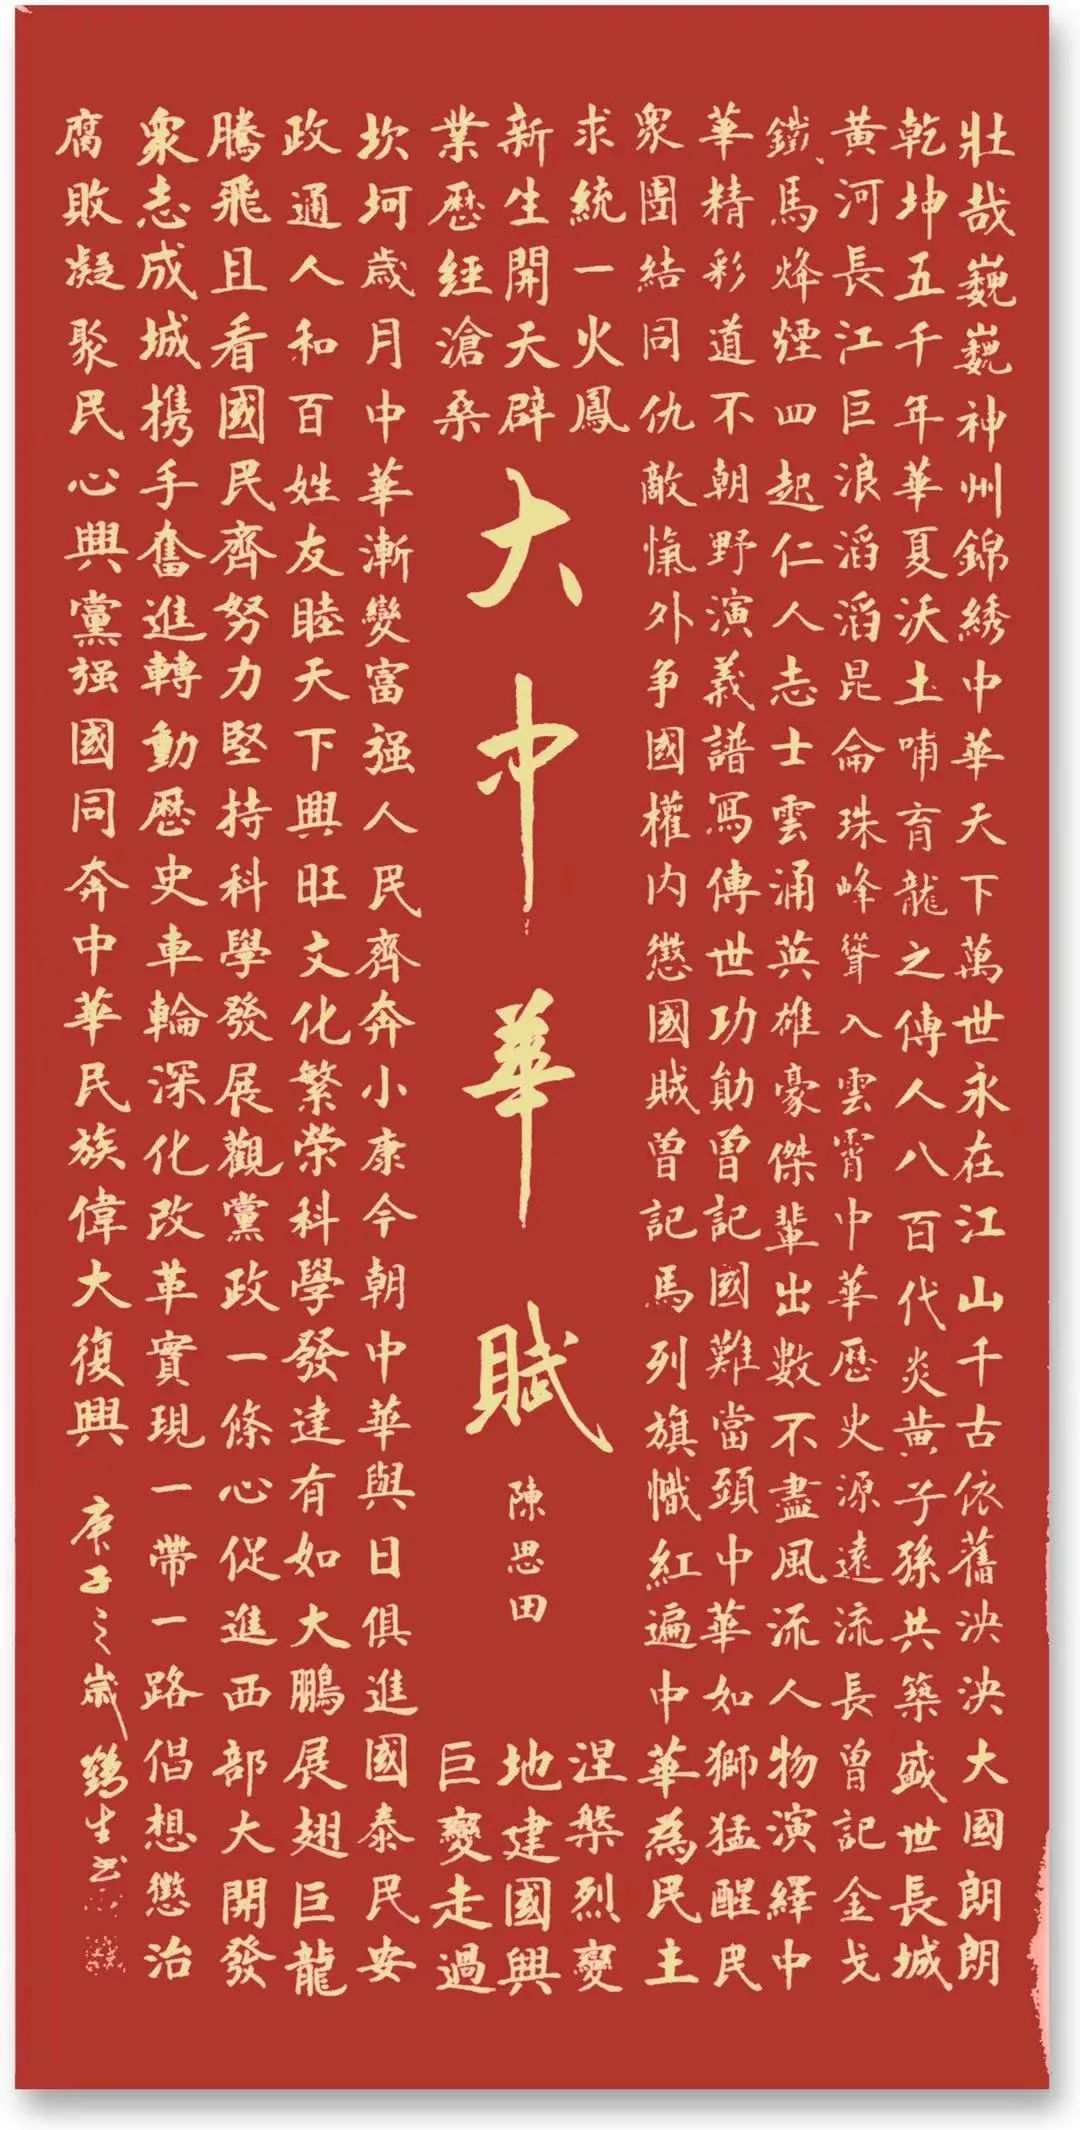 壯哉巍巍神州錦綉中華天下萬世永在江山千古依舊泱泱大國朗朗
乾坤五千年華夏沃土哺育龍之傳人八百代炎黄子孫共築盛世長城
黄河長江巨浪滔滔昆侖珠峰聳入雲霄中華歷史源遠流長曾記金戈
鐵馬烽煙四起仁人志士雲涌英雄豪傑輩出數不盡風流人物演繹中
華精彩道不朝野演義譜寫傳世功勛曾記國難當頭中華如獅猛醒民
衆團結同仇敵愾外争國權内懲國賊曾記馬列旗幟紅遍中華為民主
求統一火鳳涅槃烈變
新生開天辟地建國興
業歷經滄桑巨變走過
大中華賦
陳思田
坎坷歲月中華漸變富强人民齊奔小康今朝中華與日俱進國泰民安
政通人和百姓友睦天下興旺文化繁榮科學發達有如大鵬展翅巨龍
騰飛且看國民齊努力堅持科學發展觀黨政一條心促進西部大開發
衆志成城携手奮進轉動歷史車輪深化改革實現一帶一路倡想懲治
腐敗凝聚民心興黨强國同奔中華民族偉大復興
庚子之歲 鶴生书